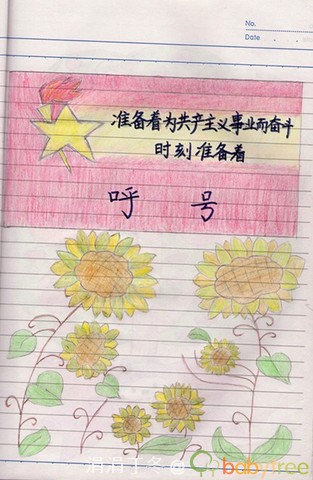 No.
Date
准备着为共产主义事业而奋斗
时刻准备着
呼 号
babytree